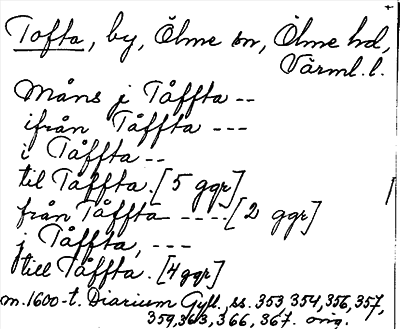 Tofta, by, Ölme sn, Ölme hd,
Värml. l.
Måns j Tåffta --
ifrån Tåffta ---
i Tåffta --
til Tåffta. [5 ggr]
från Tåffta ---- [2 ggr]
j Tåffta, ---
till Tåffta. [4 ggr]
m. 1600-t. Diarium Gyll. ss. 353, 354, 356, 357,
359, 363, 366, 367. orig.